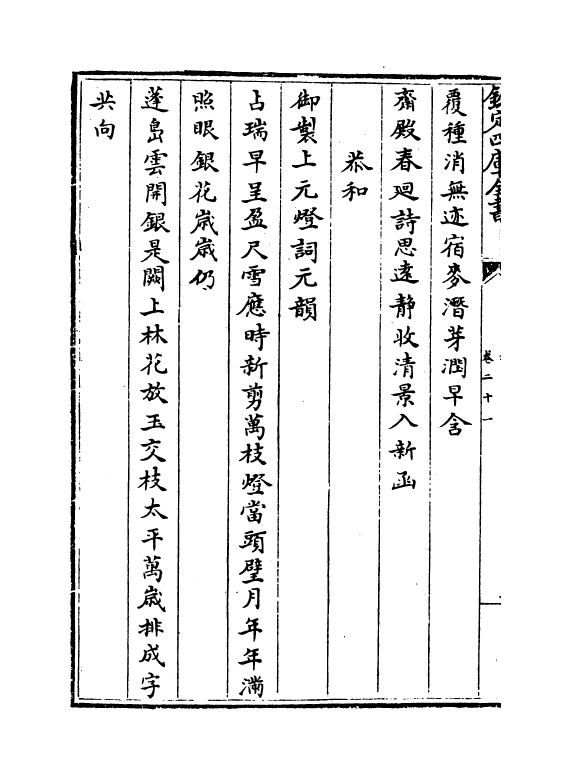 欽定四庫全書
卷二十一
覆種消無迹宿麥潛芽潤早含
齋殿春廻詩思遠靜收清景入新函
恭和
御製上元燈詞元韻
占瑞早呈盈尺雪應時新剪萬枝燈當頭璧月年年滿
照眼銀花歲歲仍
蓬島雲開銀是闕上林花放玉交枝太平萬歲排成字
共向